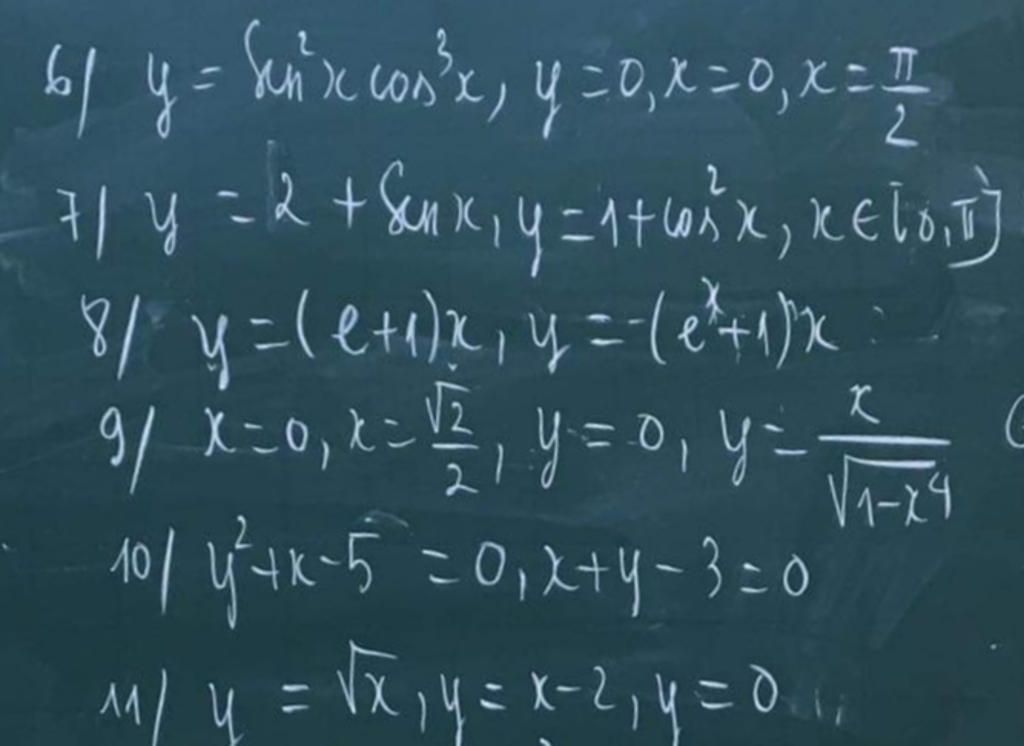 6/ y = Sin²x cos³x, y = 0, x = 0, x = π/2
7/ y = 2 + Sinx, y = 1 + cos²x, x ∈ [0, π]
8/ y = (e+1)x, y = (eˣ+1)x
9/ x = 0, x = √2/2, y = 0, y = x/√(1-x⁴)
10/ y² + x - 5 = 0, x + y - 3 = 0
11/ y = √x, y = x - 2, y = 0